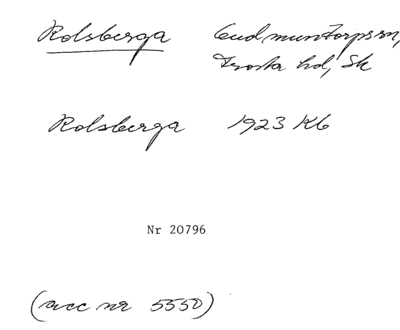 Rolsberga Gudmuntorps sn,
Frosta hd, Sk
Rolsberga 1923 Kb
Nr 20796
(acc nr 5550)